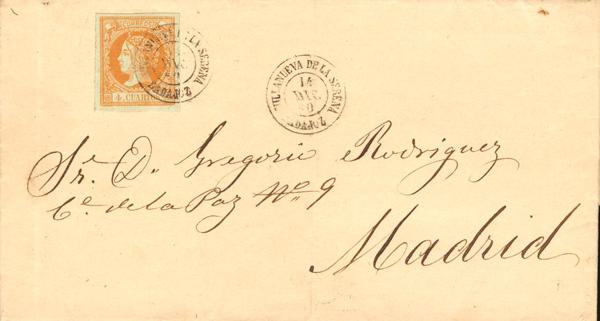 CORREOS
4 CUARTOS
VILLANUEVA DE LA SERENA
14
DIC.
60
BADAJOZ
Sr. D. Gregorio Rodriguez
C.e de la Paz No. 9
Madrid